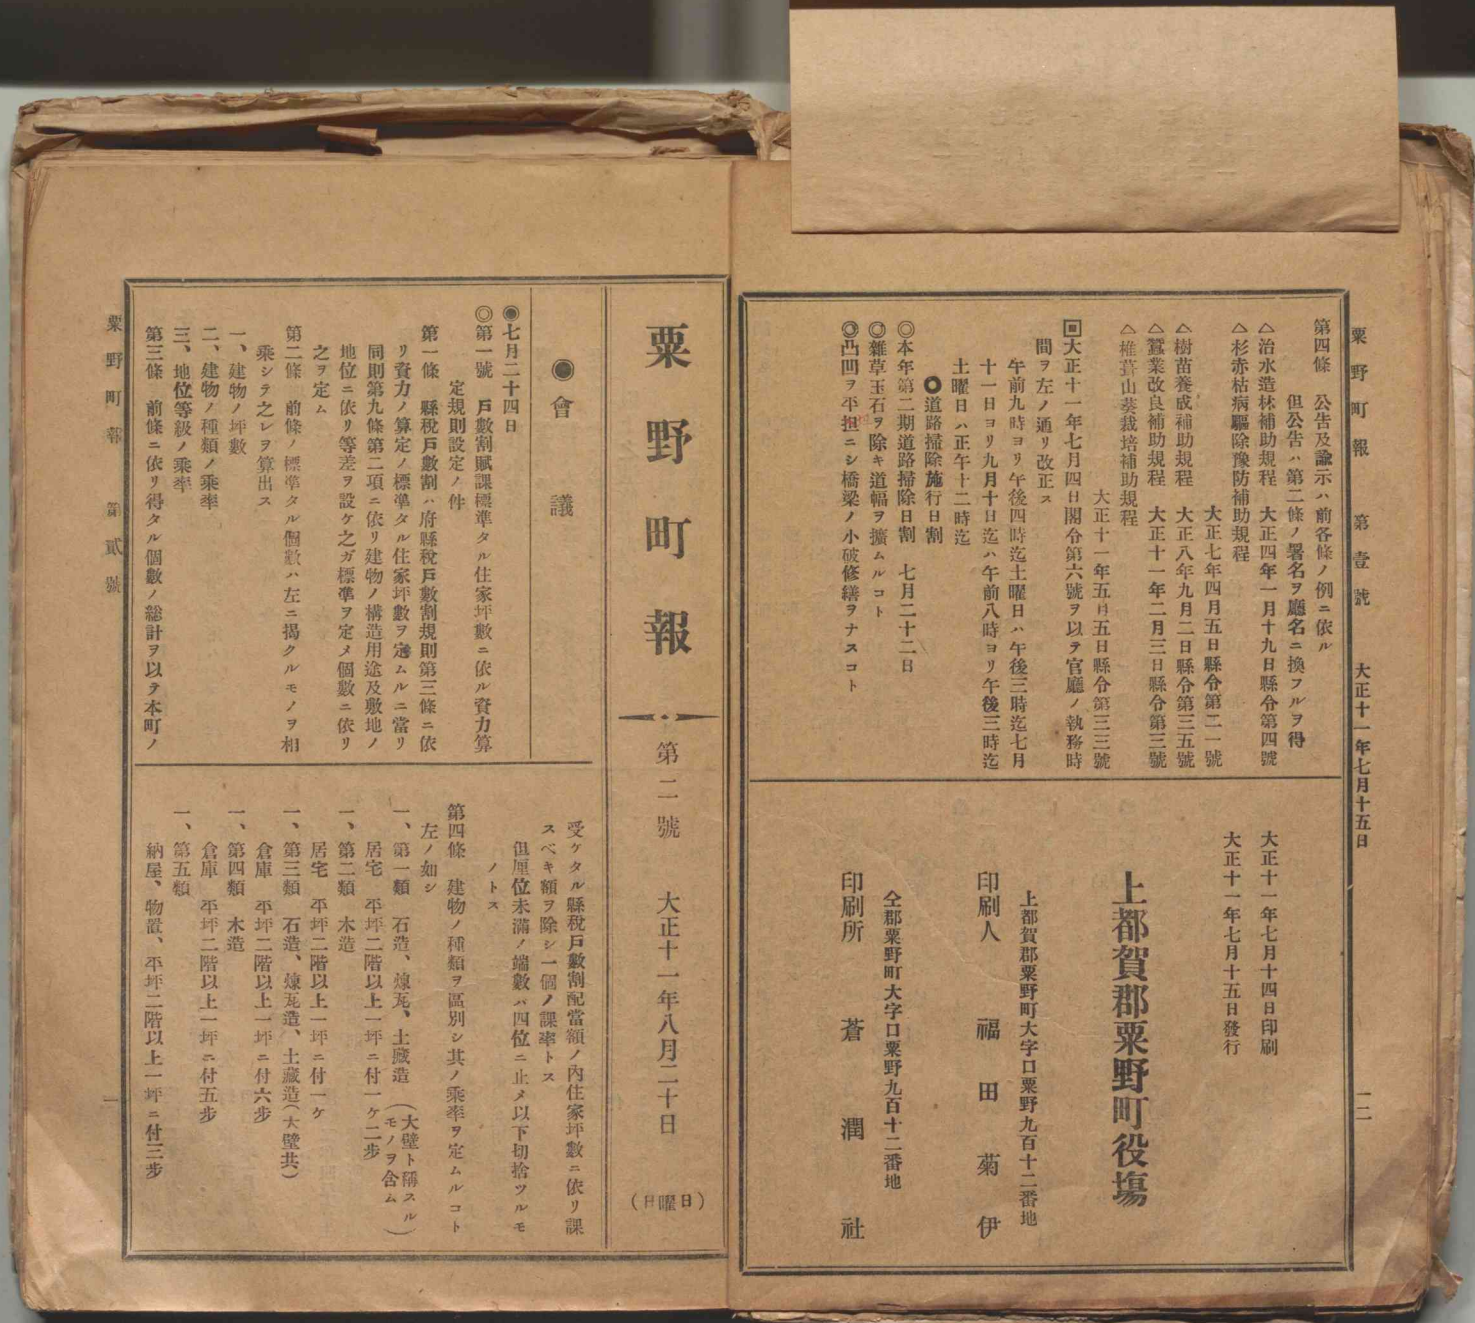 粟野町報 第壹號 大正十一年七月十五日 一二
第四條 公告及諭示ハ前各條ノ例ニ依ル
但公告ハ第二條ノ署名ヲ廳名ニ換フルヲ得
△治水造林補助規程 大正四年一月十九日縣令第四號
△杉赤枯病驅除豫防補助規程
大正七年四月五日縣令第二一號
△樹苗養成補助規程 大正八年九月二日縣令第三五號
△蠶業改良補助規程 大正十一年二月三日縣令第三號
△椎茸山葵栽培補助規程
大正十一年五月五日縣令第三三號
▣大正十一年七月四日閣令第六號ヲ以テ官廳ノ執務時
間ヲ左ノ通リ改正ス
午前九時ヨリ午後四時迄土曜日ハ午後三時迄七月
十一日ヨリ九月十日迄ハ午前八時ヨリ午後三時迄
土曜日ハ正午十二時迄
○道路掃除施行日割
◎本年第二期道路掃除日割 七月二十二日
◎雜草玉石ヲ除キ道幅ヲ擴ムルコト
◎凸凹ヲ平担ニシ橋梁ノ小破修繕ヲナスコト
大正十一年七月十四日印刷
大正十一年七月十五日發行
上都賀郡粟野町役塲
上都賀郡粟野町大字口粟野九百十二番地
印刷人 福田菊伊
仝郡粟野町大字口粟野九百十二番地
印刷所 蒼潤社
粟野町報 第二號 大正十一年八月二十日 (日曜日)
◉會議
◉七月二十四日
◎第一號 戶數割賦課標準タル住家坪數ニ依ル資力算
定規則設定ノ件
第一條 縣稅戶數割ハ府縣稅戶數割規則第三條ニ依
リ資力ノ算定ノ標準タル住家坪數ヲ定ムルニ當リ
同則第九條第二項ニ依リ建物ノ構造用途及敷地ノ
地位ニ依リ等差ヲ設ケ之ガ標準ヲ定メ個數ニ依リ
之ヲ定ム
第二條 前條ノ標準タル個數ハ左ニ揭クルモノヲ相
乘シテ之レヲ算出ス
一、建物ノ坪數
二、建物ノ種類ノ乘率
三、地位等級ノ乘率
第三條 前條ニ依リ得タル個數ノ總計ヲ以テ本町ノ
受ケタル縣稅戶數割配當額ノ內住家坪數ニ依リ課
スベキ額ヲ除シ一個ノ課率トス
但厘位未滿ノ端數ハ四位ニ止メ以下切捨ツルモ
ノトス
第四條 建物ノ種類ヲ區別シ其ノ乘率ヲ定ムルコト
左ノ如シ
一、第一類 石造、煉瓦、土藏造(大壁ト稱スルモノヲ含ム)
居宅 平坪二階以上一坪ニ付一ケ二步
一、第二類 木造
居宅 平坪二階以上一坪ニ付一ケ
一、第三類 石造、煉瓦造、土藏造(大壁共)
倉庫 平坪二階以上一坪ニ付六步
一、第四類 木造
倉庫 平坪二階以上一坪ニ付五步
一、第五類
納屋、物置、平坪二階以上一坪ニ付三步
粟野町報 第貳號 一